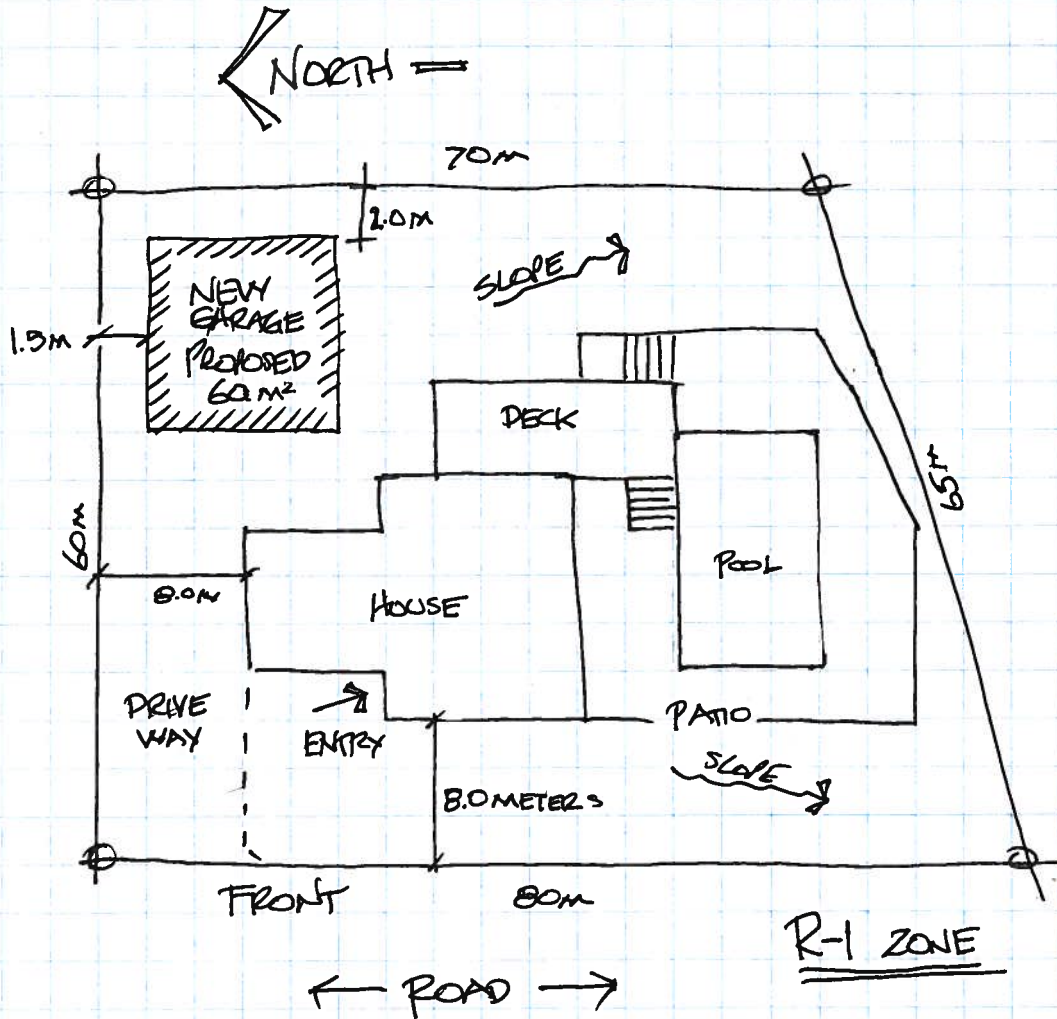 NORTH
70M
2.0M
SLOPE
NEW
GARAGE
PROPOSED
60 M²
1.5M
DECK
65M
60M
POOL
8.0M
HOUSE
DRIVE
WAY
ENTRY
PATIO
SLOPE
8.0 METERS
FRONT
80M
R-1 ZONE
ROAD